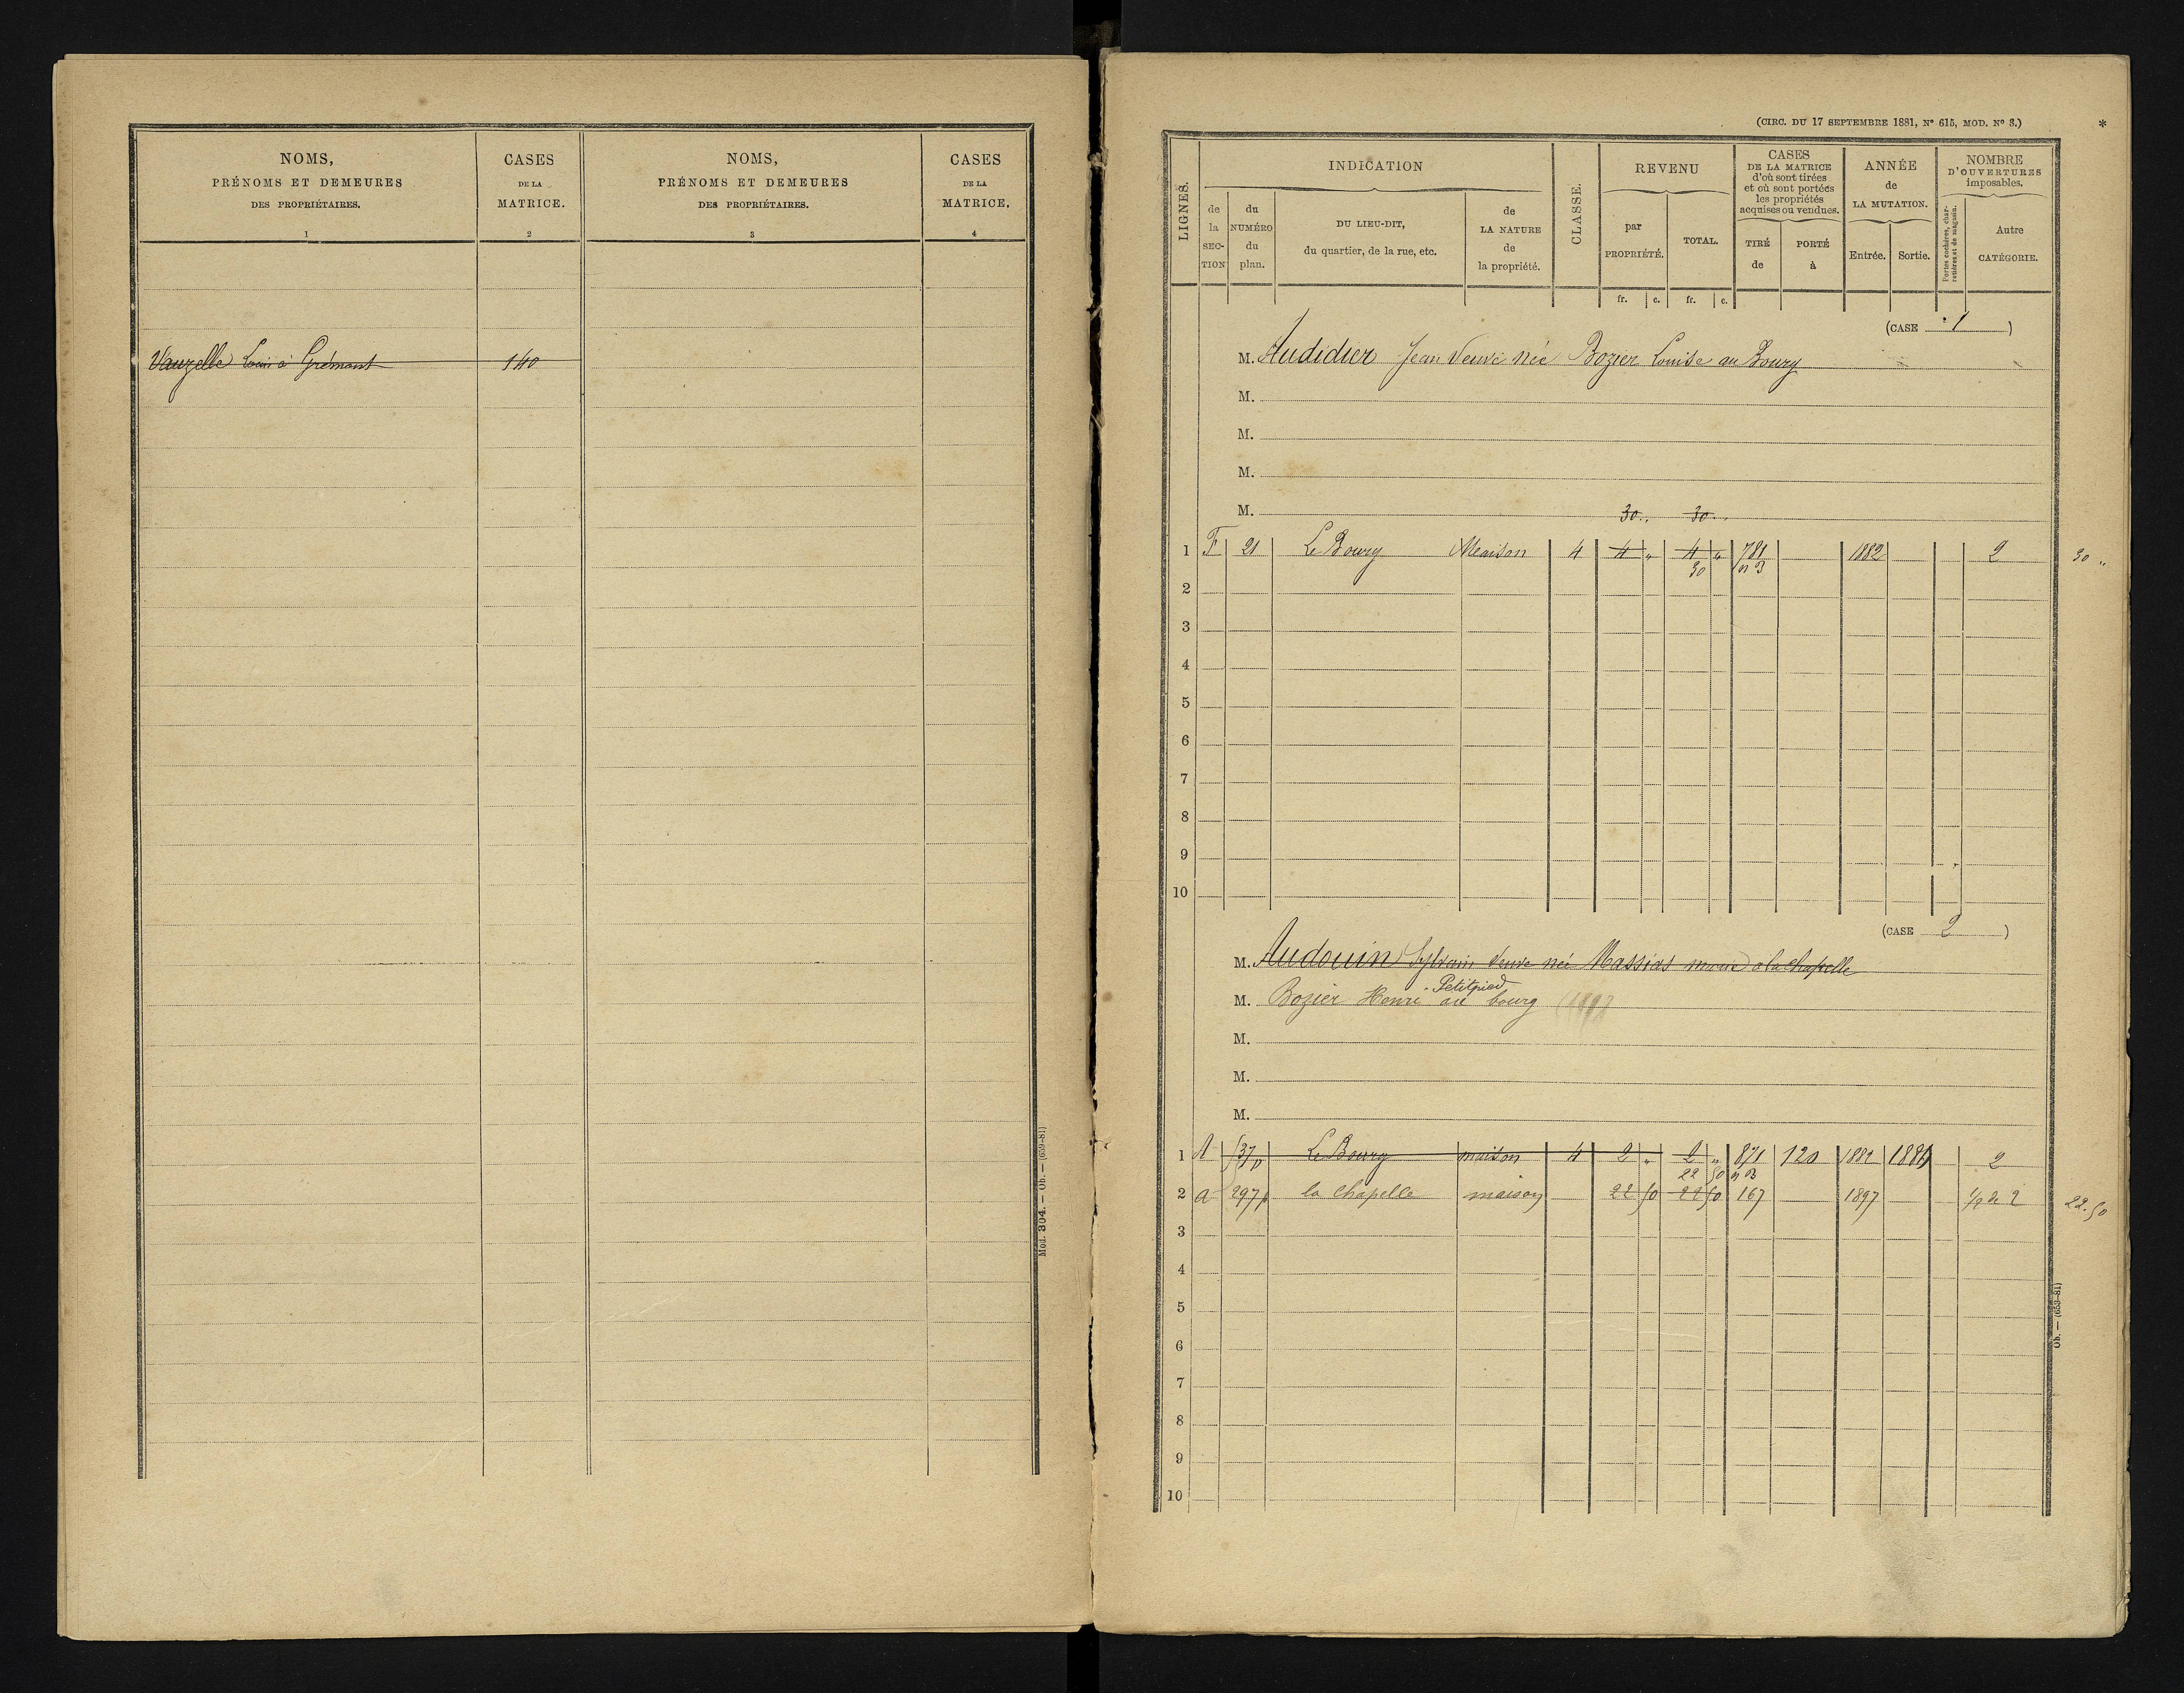 NOMS,
PRÉNOMS ET DEMEURES
DES PROPRIÉTAIRES.
1
CASES
DE LA
MATRICE.
2
NOMS,
PRÉNOMS ET DEMEURES
DES PROPRIÉTAIRES.
3
CASES
DE LA
MATRICE.
4
Vauzelle Louis à Grémont 140
Mod. 304. — Ob. — (659-81)
(CIRC. DU 17 SEPTEMBRE 1881, N° 615, MOD. N° 3.) *
LIGNES.
INDICATION
de la SECTION
du NUMÉRO du plan.
DU LIEU-DIT,
du quartier, de la rue, etc.
de LA NATURE de la propriété.
CLASSE.
REVENU
par PROPRIÉTÉ.
TOTAL.
fr. c. fr. c.
CASES
DE LA MATRICE
d'où sont tirées
et où sont portées
les propriétés
acquises ou vendues.
TIRÉ de
PORTÉ à
ANNÉE
de
LA MUTATION.
Entrée. Sortie.
NOMBRE
D'OUVERTURES
imposables.
Portes cochères, charretières et de magasin.
Autre
CATÉGORIE.
(CASE 1)
M. Audidier Jean Veuve née Bozier Louise au Bourg
M.
M.
M.
M.
30 " 30 "
1 F 21 Le Bourg Maison 4 4 " 4 " 781 1882 2 30 "
30
2
3
4
5
6
7
8
9
10
(CASE 2)
M. Audouin Sylvain Veuve née Massias marie à la Chapelle
Petitpied
M. Bozier Henri au bourg
M.
M.
M.
1 A 537p Le Bourg maison 4 2 " 2 " 871 120 1882 1884 2
22 50
2 a 297p la Chapelle maison 22 50 22 50 167 1897 1/2 de 2 22.50
3
4
5
6
7
8
9
10
Ob. — (659-81)